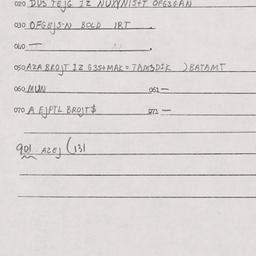 020 DUS TEJG IZ NUXYNIS+T OFG3GAN
030 OFGEJS-N BOLD IRT
040 —
050 AZA BROJT IZ G3S+MAK=TAM3DIK ) BATAMT
060 MUN 061 —
070 A EJPTL BROJT$ 071 —
901 AZEJ (131